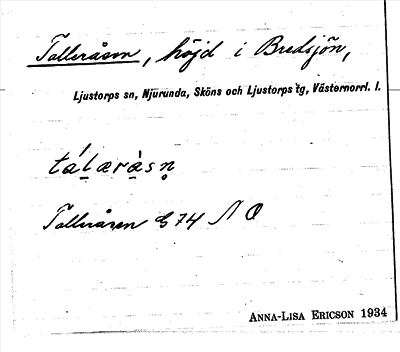 Talleråsen, höjd i Bredsjön,
Ljustorps sn, Njurunda, Sköns och Ljustorps tg, Västernorrl. l.
tálæràsn̥
Talleråsen G74 NO
ANNA-LISA ERICSON 1934